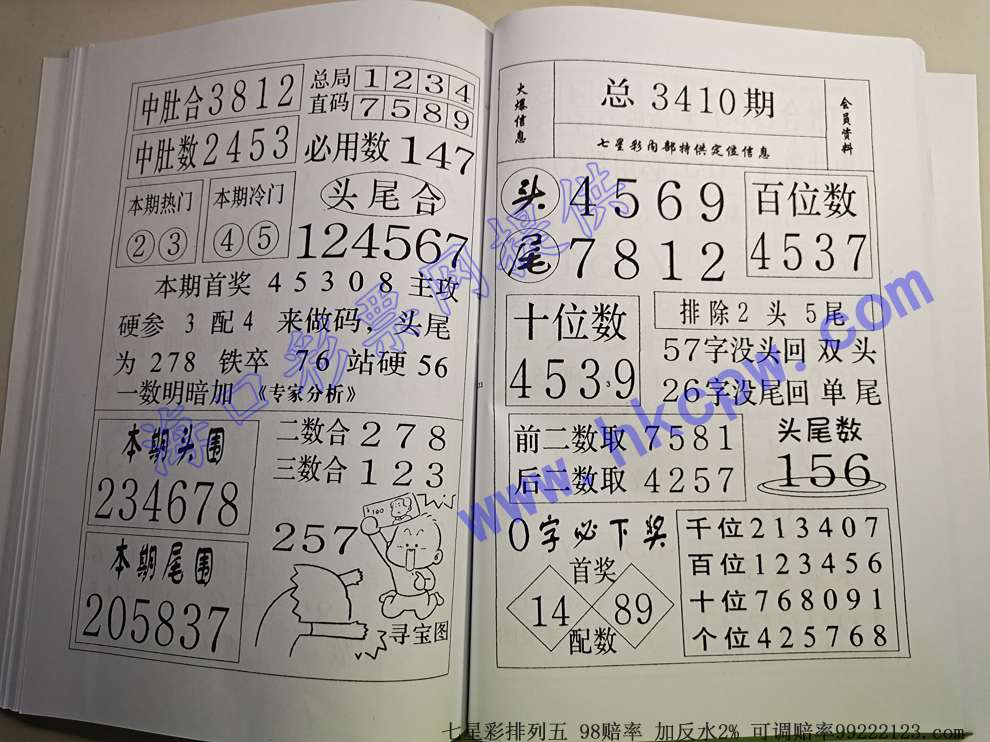 中肚合3812
总局 1 2 3 4
直码 7 5 8 9
中肚数2453
必用数147
本期热门
② ③
本期冷门
④ ⑤
头尾合
124567
本期首奖 4 5 3 0 8 主攻
硬参 3 配 4 来做码，头尾
为 278 铁卒 76 站硬 56
一数明暗加 《专家分析》
本期头围
234678
本期尾围
205837
二数合 2 7 8
三数合 1 2 3
257
寻宝图
火爆信息
总 3410期
七星彩内部特供定位信息
会员资料
头 4569
尾 7812
百位数
4537
十位数
4539
排除 2 头 5 尾
57字没头回 双 头
26字没尾回 单 尾
前二数取 7581
后二数取 4257
头尾数
156
0字必下奖
首奖
14 89
配数
千位213407
百位123456
十位768091
个位425768
海口彩票网提供
www.hkcpw.com
七星彩排列五 98赔率 加反水2% 可调赔率99222123.com